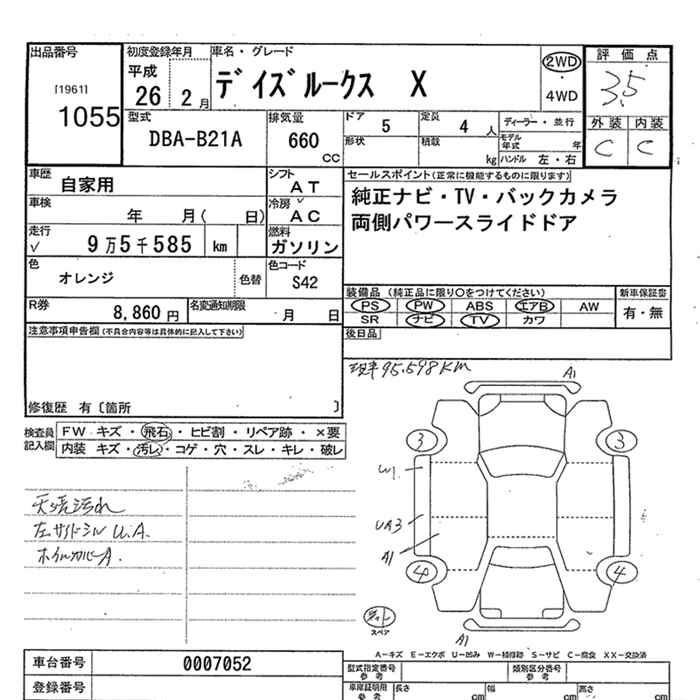 出品番号
[1961]
1055
初度登録年月
平成
26 2月
車名・グレード
デイズルークス X
2WD
・
4WD
評価点
3.5
外装 内装
C C
型式
DBA-B21A
排気量
660
CC
ドア 5
定員 4 人
ディーラー・並行
形状
積載 kg
モデル年式 年
ハンドル 左・右
車歴
自家用
シフト
AT
車検
年 月( 日)
冷房
AC
走行
9万5千585 km
燃料
ガソリン
色
オレンジ
色替
色コード
S42
R券
8,860円
名変通知期限
月 日
セールスポイント(正常に機能するものに限ります)
純正ナビ・TV・バックカメラ
両側パワースライドドア
装備品 (純正品に限り〇をつけてください)
PS PW ABS エアB AW
SR ナビ TV カワ
新車保証書
有・無
後日品
注意事項申告欄(不具合内容等は具体的に記入して下さい)
修復歴 有〔箇所 〕
検査員
記入欄
FW キズ・飛石・ヒビ割・リペア跡・×要
内装 キズ・汚レ・コゲ・穴・スレ・キレ・破レ
現車95,598KM
A1
3 3
W1
UA3
A1
4 4
A1
天張汚れ
左サイドシル U.A.
ホイルカバーA.
スペア
A-キズ E-エクボ U-凹み W-補修跡 S-サビ C-腐食 XX-交換済
車台番号
0007052
登録番号
型式指定番号
参考
類別区分番号
参考
車庫証明用
参考
長さ cm
幅 cm
高さ cm